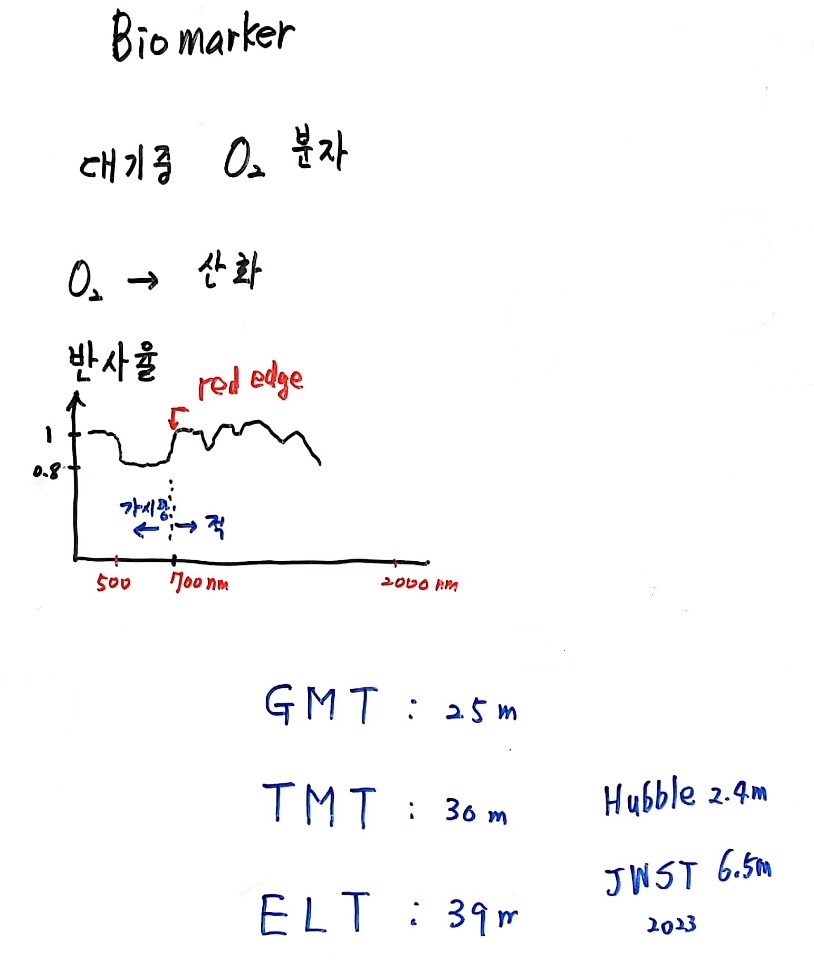 Biomarker
대기중 O₂ 분자
O₂ → 산화
반사율
red edge
1
0.8
가시광
← → 적
500 700 nm 2000 nm
GMT : 25 m
TMT : 30 m
ELT : 39 m
Hubble 2.4m
JWST 6.5m
2023